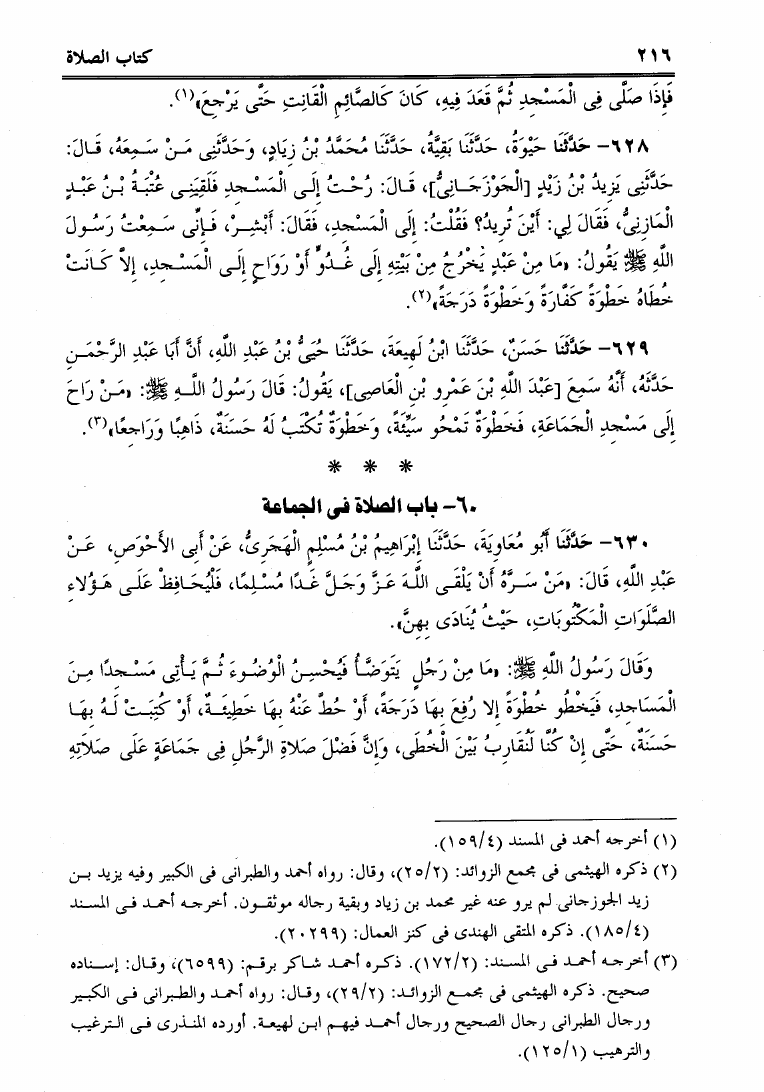 ٢١٦ كتاب الصلاة
فَإِذَا صَلَّى فِى الْمَسْجِدِ ثُمَّ قَعَدَ فِيهِ، كَانَ كَالصَّائِمِ الْقَانِتِ حَتَّى يَرْجِعَ»(١).
٦٢٨- حَدَّثَنَا حَيْوَةُ، حَدَّثَنَا بَقِيَّةُ، حَدَّثَنَا مُحَمَّدُ بْنُ زِيَادٍ، وَحَدَّثَنِى مَنْ سَمِعَهُ، قَالَ:
حَدَّثَنِى يَزِيدُ بْنُ زَيْدٍ [الْجَوْزَجَانِىُّ]، قَالَ: رُحْتُ إِلَى الْمَسْجِدِ فَلَقِيَنِى عُتْبَةُ بْنُ عَبْدٍ
الْمَازِنِىُّ، فَقَالَ لِي: أَيْنَ تُرِيدُ؟ فَقُلْتُ: إِلَى الْمَسْجِدِ، فَقَالَ: أَبْشِرْ، فَإِنِّى سَمِعْتُ رَسُولَ
اللَّهِ ﷺ يَقُولُ: «مَا مِنْ عَبْدٍ يَخْرُجُ مِنْ بَيْتِهِ إِلَى غُدُوٍّ أَوْ رَوَاحٍ إِلَى الْمَسْجِدِ، إِلاَّ كَانَتْ
خُطَاهُ خَطْوَةً كَفَّارَةً وَخَطْوَةً دَرَجَةً»(٢).
٦٢٩- حَدَّثَنَا حَسَنٌ، حَدَّثَنَا ابْنُ لَهِيعَةَ، حَدَّثَنَا حُيَىُّ بْنُ عَبْدِ اللَّهِ، أَنَّ أَبَا عَبْدِ الرَّحْمَنِ
حَدَّثَهُ، أَنَّهُ سَمِعَ [عَبْدَ اللَّهِ بْنَ عَمْرِو بْنِ الْعَاصِى]، يَقُولُ: قَالَ رَسُولُ اللَّهِ ﷺ: «مَنْ رَاحَ
إِلَى مَسْجِدِ الْجَمَاعَةِ، فَخَطْوَةٌ تَمْحُو سَيِّئَةً، وَخَطْوَةٌ تُكْتَبُ لَهُ حَسَنَةٌ، ذَاهِبًا وَرَاجِعًا»(٣).
* * *
٦٠- باب الصلاة فى الجماعة
٦٣٠- حَدَّثَنَا أَبُو مُعَاوِيَةَ، حَدَّثَنَا إِبْرَاهِيمُ بْنُ مُسْلِمٍ الْهَجَرِىُّ، عَنْ أَبِى الأَحْوَصِ، عَنْ
عَبْدِ اللَّهِ، قَالَ: «مَنْ سَرَّهُ أَنْ يَلْقَى اللَّهَ عَزَّ وَجَلَّ غَدًا مُسْلِمًا، فَلْيُحَافِظْ عَلَى هَؤُلاءِ
الصَّلَوَاتِ الْمَكْتُوبَاتِ، حَيْثُ يُنَادَى بِهِنَّ».
وَقَالَ رَسُولُ اللَّهِ ﷺ: «مَا مِنْ رَجُلٍ يَتَوَضَّأُ فَيُحْسِنُ الْوُضُوءَ ثُمَّ يَأْتِى مَسْجِدًا مِنَ
الْمَسَاجِدِ، فَيَخْطُو خُطْوَةً إِلا رُفِعَ بِهَا دَرَجَةً، أَوْ حُطَّ عَنْهُ بِهَا خَطِيئَةٌ، أَوْ كُتِبَتْ لَهُ بِهَا
حَسَنَةٌ، حَتَّى إِنْ كُنَّا لَنُقَارِبُ بَيْنَ الْخُطَى، وَإِنَّ فَضْلَ صَلاةِ الرَّجُلِ فِى جَمَاعَةٍ عَلَى صَلاتِهِ
(١) أخرجه أحمد فى المسند (١٥٩/٤).
(٢) ذكره الهيثمى فى مجمع الزوائد: (٢٥/٢)، وقال: رواه أحمد والطبرانى فى الكبير وفيه يزيد بن
زيد الجوزجانى لم يرو عنه غير محمد بن زياد وبقية رجاله موثقون. أخرجه أحمد فى المسند
(١٨٥/٤). ذكره المتقى الهندى فى كنز العمال: (٢٠٢٩٩).
(٣) أخرجه أحمد فى المسند: (١٧٢/٢). ذكره أحمد شاكر برقم: (٦٥٩٩)، وقال: إسناده
صحيح. ذكره الهيثمى فى مجمع الزوائد: (٢٩/٢)، وقال: رواه أحمد والطبرانى فى الكبير
ورجال الطبرانى رجال الصحيح ورجال أحمد فيهم ابن لهيعة. أورده المنذرى فى الترغيب
والترهيب (١٢٥/١).